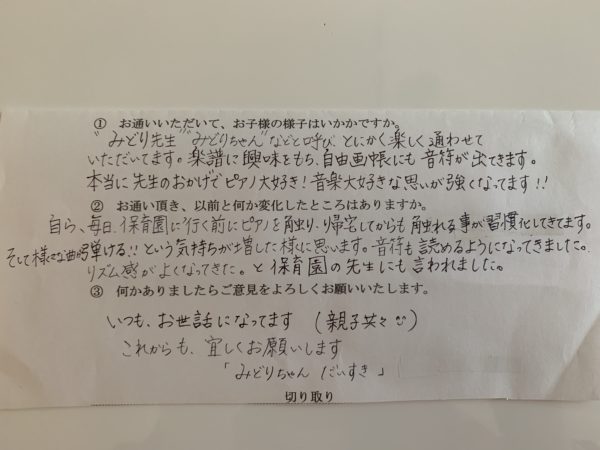 ① お通いいただいて、お子様の様子はいかかですか。
"みどり先生""みどりちゃん"などと呼び、とにかく楽しく通わせて
いただいてます。楽譜に興味をもち、自由画帳にも音符が出てきます。
本当に先生のおかげでピアノ大好き！音楽大好きな思いが強くなってます！！
② お通い頂き、以前と何か変化したところはありますか。
自ら、毎日、保育園に行く前にピアノを触り、帰宅してからも触れる事が習慣化してきてます。
そして様々な曲を弾ける！！という気持ちが増した様に思います。音符も読めるようになってきました。
リズム感がよくなってきた。と保育園の先生にも言われました。
③ 何かありましたらご意見をよろしくお願いいたします。
いつも、お世話になってます (親子共々)
これからも、宜しくお願いします
「みどりちゃん だいすき」
切り取り